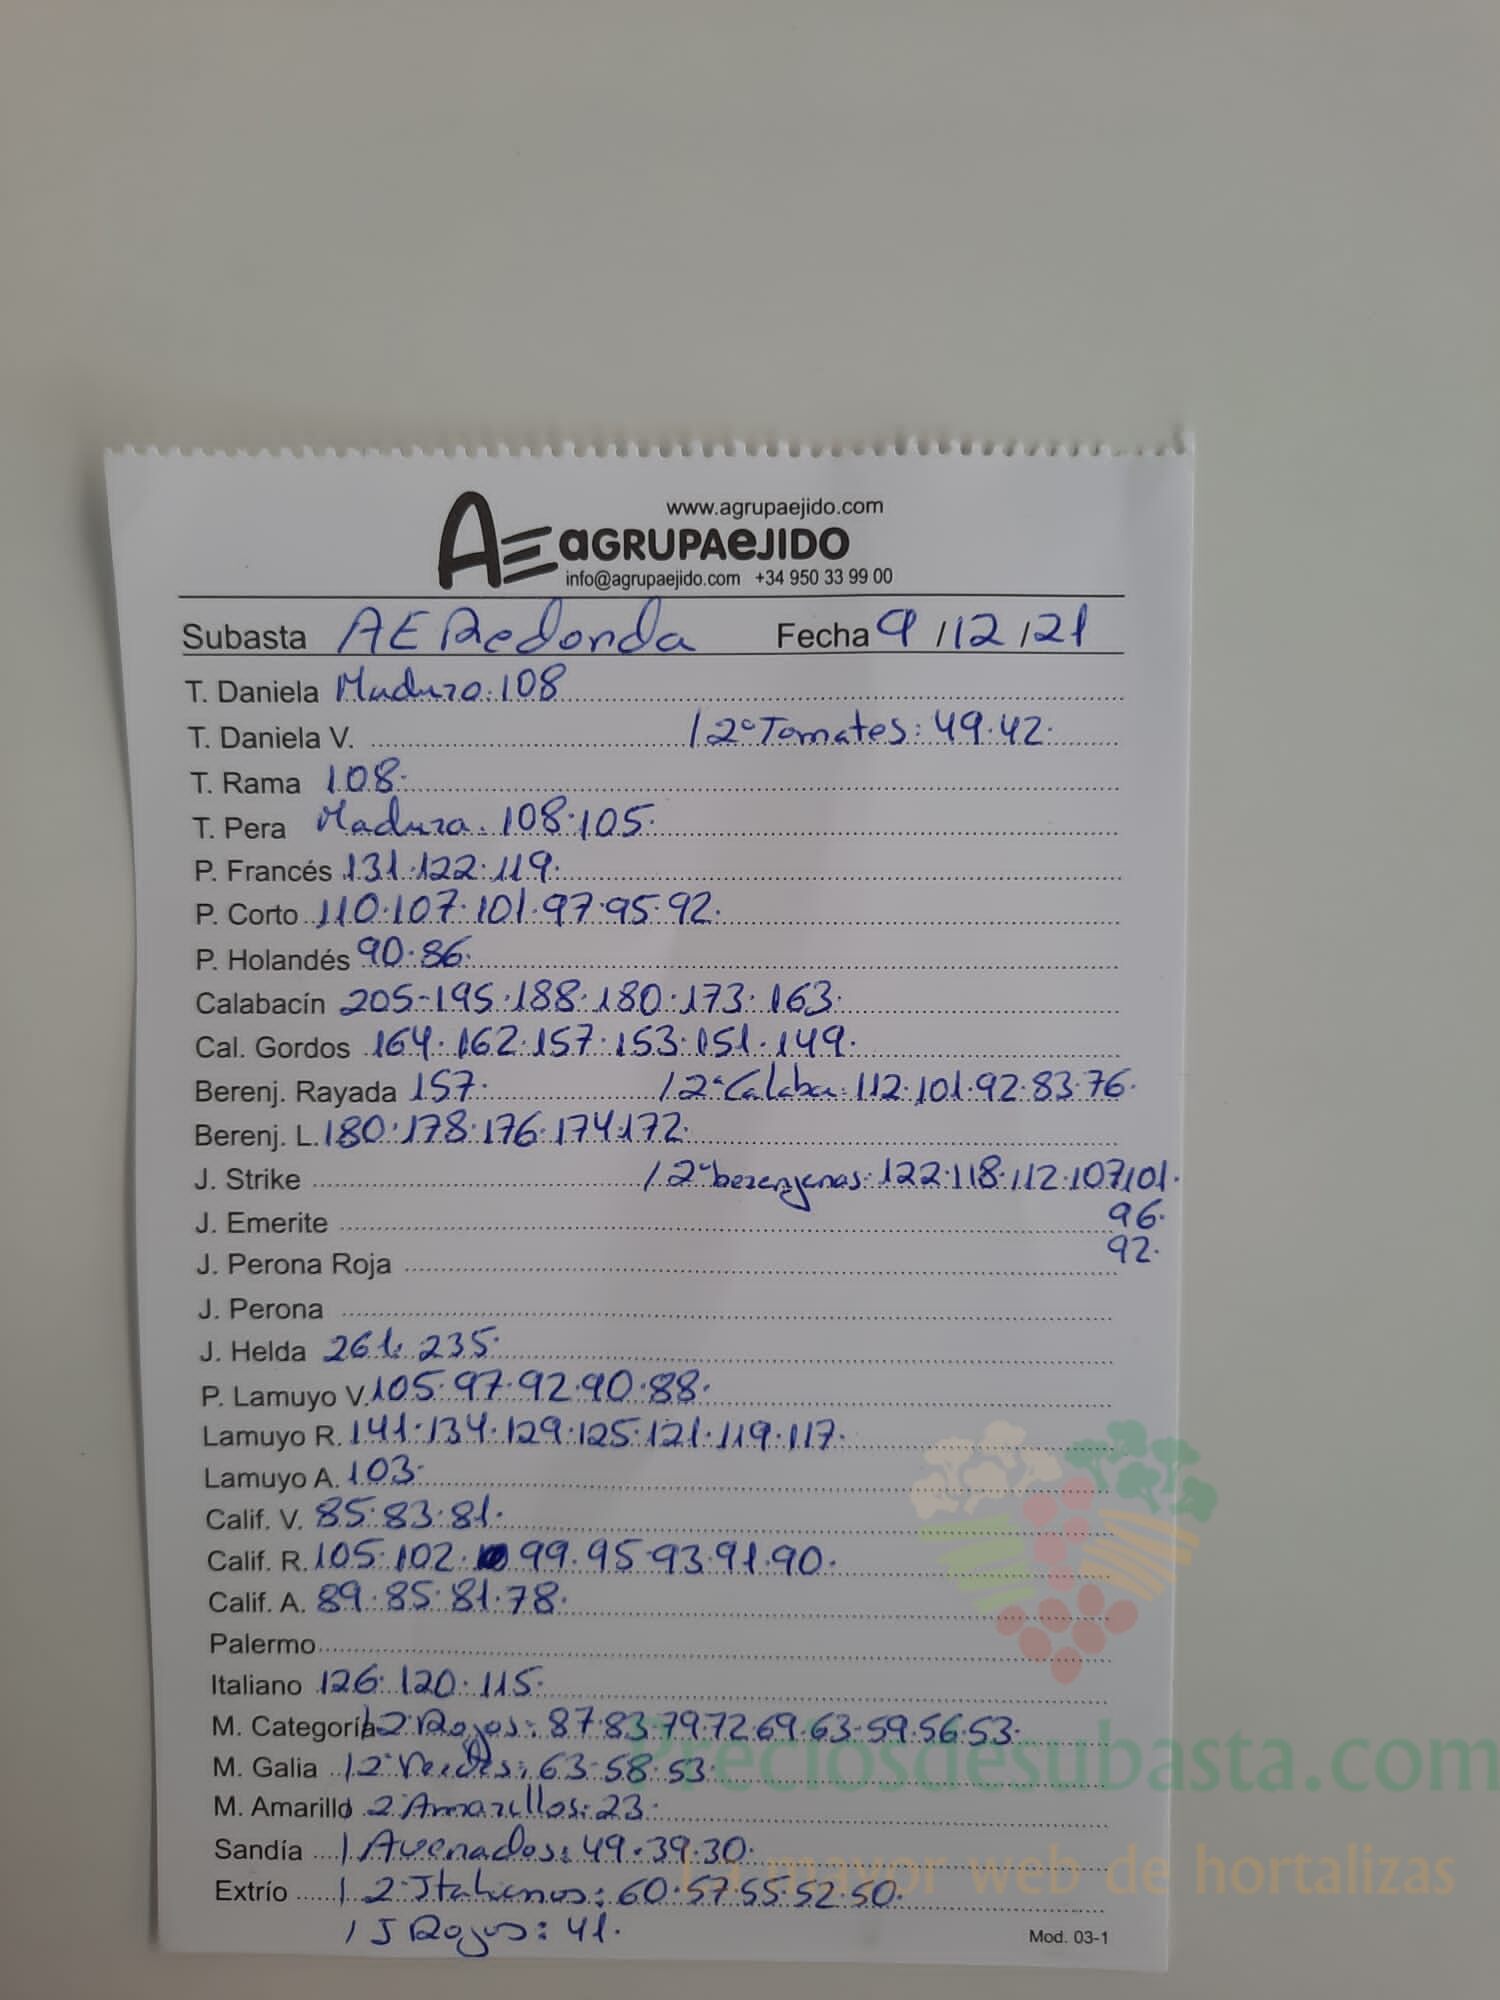 www.agrupaejido.com
AE aGRUPAeJIDO
info@agrupaejido.com +34 950 33 99 00
Subasta AE Redonda Fecha 9/12/21
T. Daniela Maduro. 108
T. Daniela V. / 2ª Tomates: 49.42.
T. Rama 108.
T. Pera Madura. 108.105.
P. Francés 131.122.119.
P. Corto 110.107.101.97.95.92.
P. Holandés 90.86.
Calabacín 205-195.188.180.173.163.
Cal. Gordos 164.162.157.153.151.149.
Berenj. Rayada 157. / 2ª Calaba: 112.101.92.83.76.
Berenj. L. 180.178.176.174.172.
J. Strike / 2ª berenjenas: 122.118.112.107.101.
J. Emerite 96.
J. Perona Roja 92.
J. Perona
J. Helda 261. 235.
P. Lamuyo V. 105.97.92.90.88.
Lamuyo R. 141.134.129.125.121.119.117.
Lamuyo A. 103.
Calif. V. 85.83.81.
Calif. R. 105.102. 99.95.93.91.90.
Calif. A. 89.85.81.78.
Palermo
Italiano 126.120.115.
M. Categoría / 2ª Rojos: 87.83.79.72.69.63-59.56.53.
M. Galia / 2ª Verdes: 63.58.53.
M. Amarillo 2ª Amarillos: 23.
Sandía / Avenados: 49.39.30.
Extrío / 2ª Italianos: 60.57.55.52.50.
/ J Rojos: 41.
Mod. 03-1
Preciosdesubasta.com
La mayor web de hortalizas